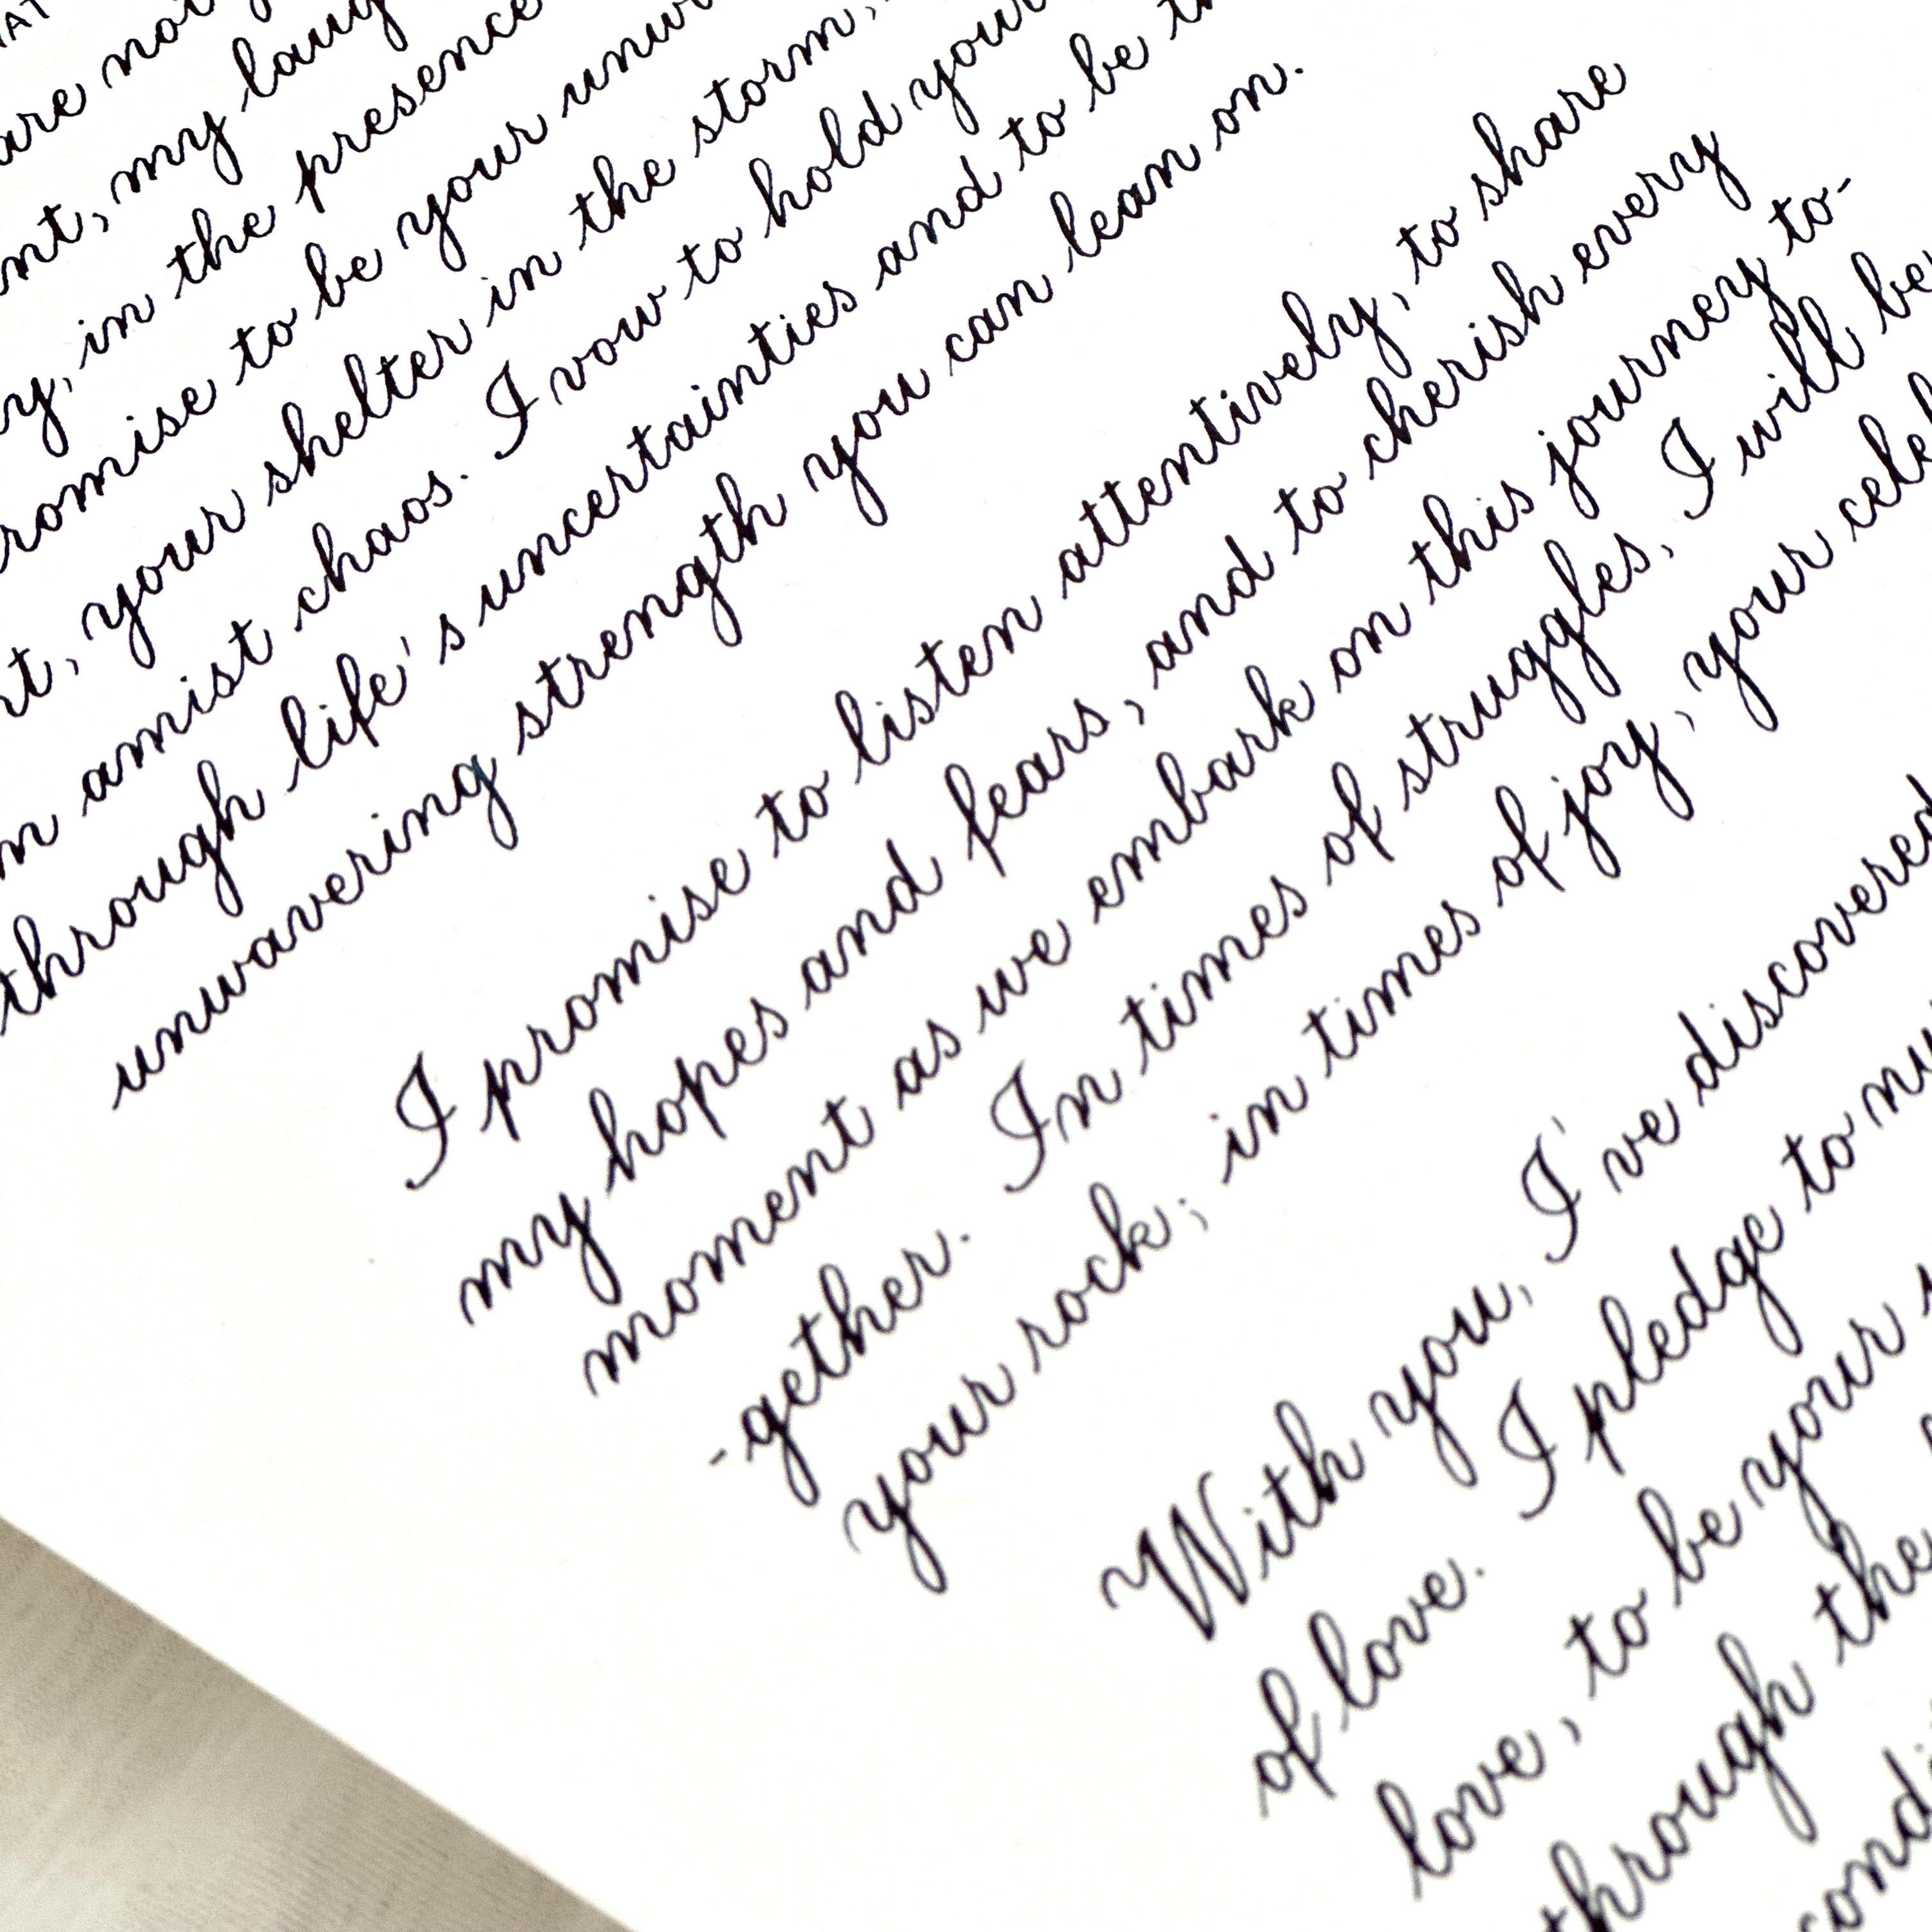 are not
nt, my laug
y, in the presence
romise to be your unw
t, your shelter in the storm,
m amist chaos. I vow to hold your
through life's uncertainties and to be th
unwavering strength you can lean on.
I promise to listen attentively, to share
my hopes and fears, and to cherish every
moment as we embark on this journey to-
-gether. In times of struggles, I will be
your rock; in times of joy, your cele
With you, I've discovered
of love. I pledge to nu
love, to be your
through the
condi